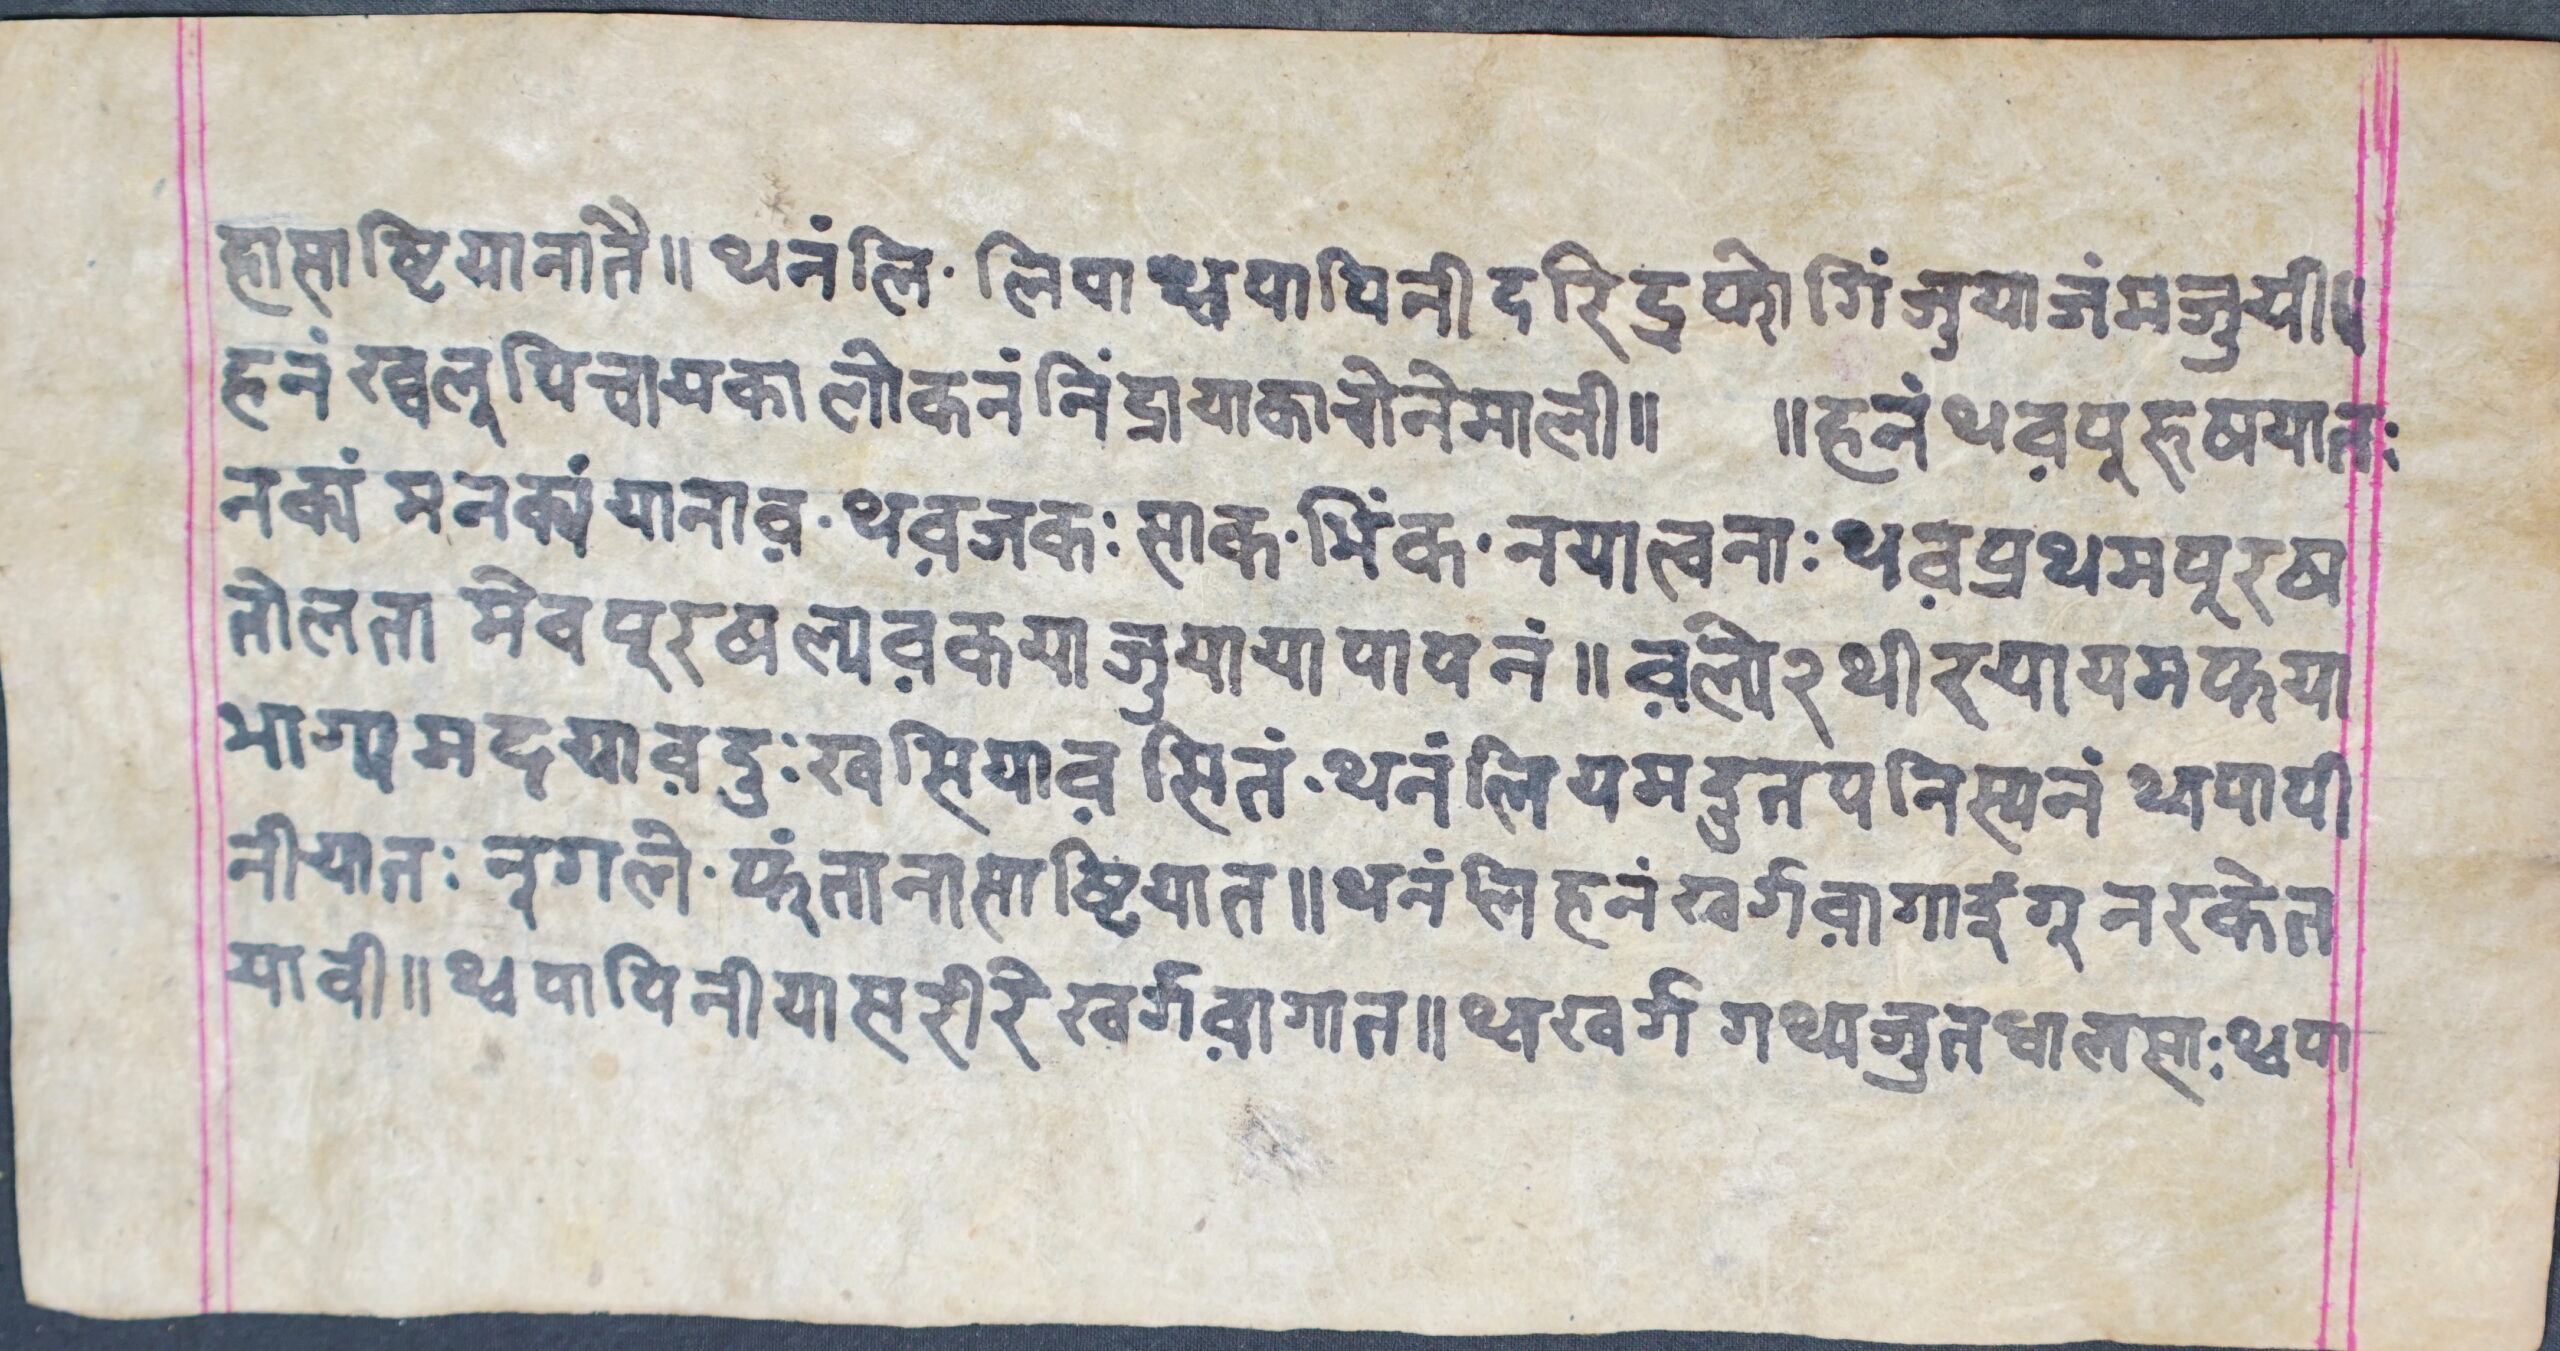 हासाष्टियानातै॥ थनंलि· लिपाथ्वपापिनीदरिद्रफोगिंजुयाजंमजुयी॥
हनं ख्वलुपिच्वायकालोकनं निंद्रायाकाचोनेमाली॥ ॥हनं थव़पुरुषयातः
नक्यं मनक्यंयानाव़·थव़जकः साक·भिंक·नयात्वनाः थव़प्रथमपुरष
तोलता मेवपुरषल्यव़कयाजुयायापापनं॥ व़लो२थीरयायमफया
भाग्यमदयाव़दुःखसियाव़ सितं·थनंलियमदुतपनिस्यनं थ्वपापी
नीयातः नुगले·फुंतानासाष्टियात॥थनंलिहनंखर्गव़ागादुंगु नरकेत
यावी॥ थ्वपापिनीयासरीरे खर्गव़ागात॥ थ्वखर्ग गथ्यजुतधालसाःथ्वपा